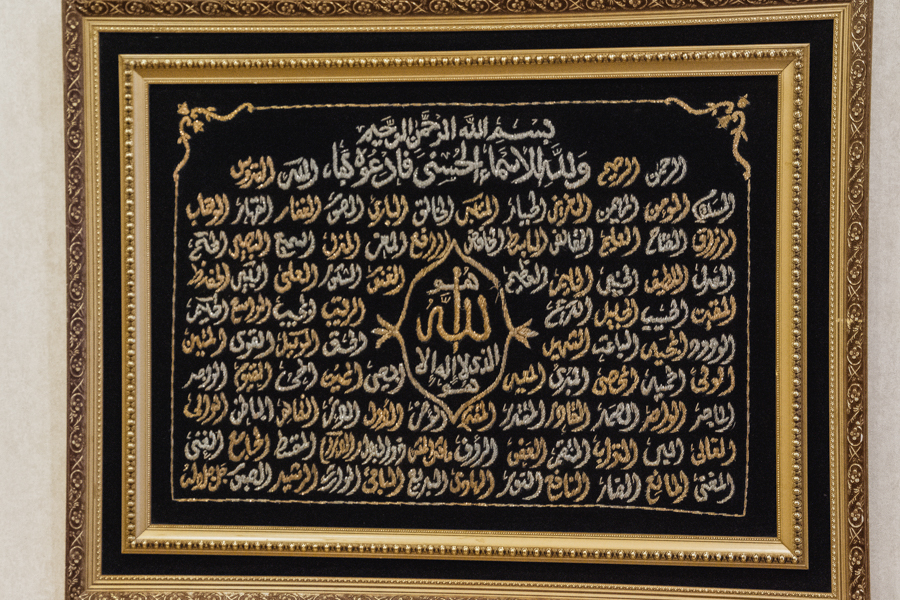 بسم الله الرحمن الرحيم
ولله الاسماء الحسنى فادعوه بها
الرحمن الرحيم الملك القدوس
السلام المؤمن المهيمن العزيز الجبار المتكبر الخالق البارئ المصور الغفار القهار الوهاب
الرزاق الفتاح العليم القابض الباسط الخافض الرافع المعز المذل السميع البصير الحكم
العدل اللطيف الخبير الحليم العظيم الغفور الشكور العلي الكبير الحفيظ
المقيت الحسيب الجليل الكريم الرقيب المجيب الواسع الحكيم
هو
الله
الذي لا إله إلا
هو
الودود المجيد الباعث الشهيد الحق الوكيل القوي المتين
الولي الحميد المحصي المبدئ المعيد المحيي المميت الحي القيوم الواجد
الماجد الواحد الصمد القادر المقتدر المقدم المؤخر الأول الآخر الظاهر الباطن الوالي
المتعالي البر التواب المنتقم العفو الرؤف مالك الملك ذو الجلال والاكرام المقسط الجامع الغني
المغني المانع الضار النافع النور الهادي البديع الباقي الوارث الرشيد الصبور جل جلاله